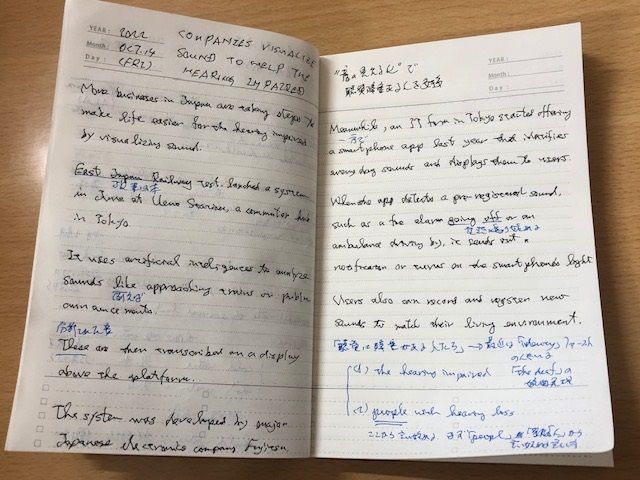 YEAR: 2022
Month: OCT. 14
Day: (FRI)
COMPANIES VISUALIZE
SOUND TO HELP THE
HEARING IMPAIRED
More businesses in Japan are taking steps to
make life easier for the hearing impaired
by visualizing sound.
East Japan Railway test. lanched a system
JR東日本
in June at Ueno Station, a commuter hub
in Tokyo.
It uses artificial intelligences to analyze
sounds like approaching trains or public
announcements.
These are then transcribed on a display
above the platform.
The system was developed by major
Japanese electronics company Fujitsu.
"音の見える化"で
YEAR:
Month:
Day:
Meanwhile, an IT firm in Tokyo started offering
a smartphone app last year that identifies
everyday sounds and displays them to users.
When the app detects a pre-registered sound,
such as a fire alarm going off or an
ambulance driving by, it sends out a
notification or turns on the smartphone's light
Users also can record and register new
sounds to match their living environment.
「聴覚に障害がある人たち」→最近は「identity」
(1) the hearing impaired 「the deaf」の
(2) people with hearing loss